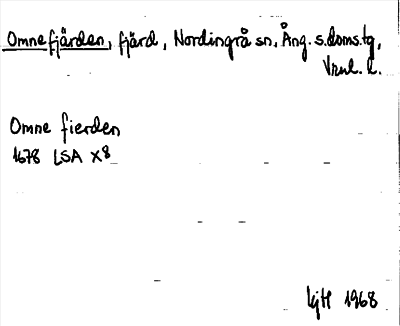 Omnefjärden, fjärd, Nordingrå sn, Ång. s. doms. tg,
Vnrl. l.
Omne fierden
1678 LSA X8
KjH 1968